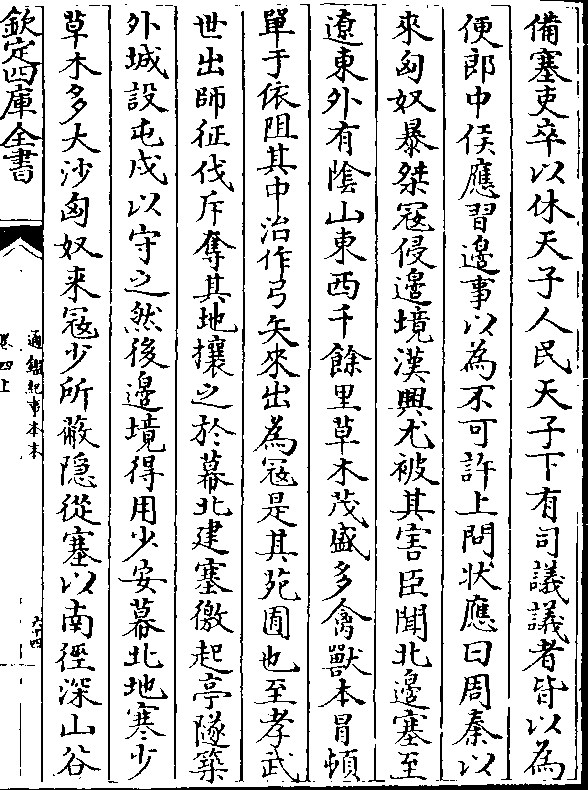 備塞吏卒以休天子人民天子下有司議議者皆以為
便郎中侯應習邊事以為不可許上問狀應曰周秦以
來匈奴暴桀冦侵邊境漢興尤被其害臣聞北邊塞至
遼東外有陰山東西千餘里草木茂盛多禽獸本冒頓
單于依阻其中治作弓矢來出為冦是其苑囿也至孝武
世出師征伐斥奪其地攘之於幕北建塞徼起亭隧築
外城設屯戍以守之然後邊境得用少安幕北地寒少
草木多大沙匈奴來冦少所蔽隱從塞以南徑深山谷
欽定四庫全書
通鑑紀事本末
卷四上
六十四